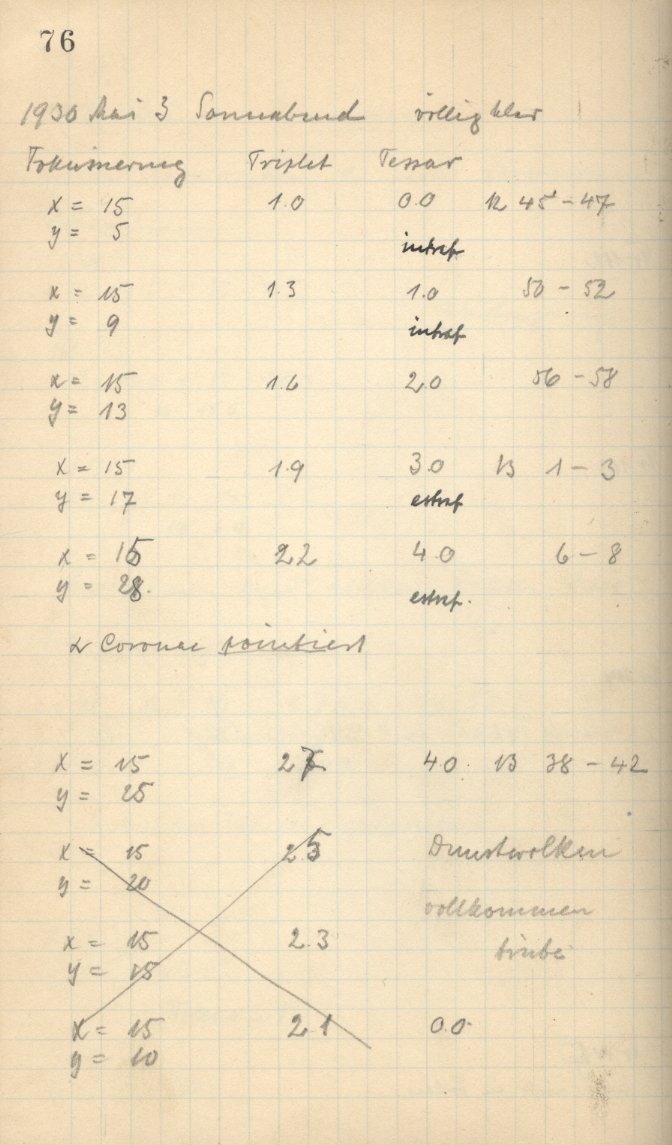 76
1930 Mai 3 Sonnabend völlig klar
Fokussierung Triplet Tessar
x = 15 1.0 0.0 12 45 - 47
y = 5 intraf
x = 15 1.3 1.0 50 - 52
y = 9 intraf
x = 15 1.6 2.0 56 - 58
y = 13
x = 15 1.9 3.0 13 1 - 3
y = 17 extraf
x = 15 2.2 4.0 6 - 8
y = extraf.
α Coronae pointiert
x = 15 2 4.0 13 38 - 42
y = 25
x = 15 2.5 Dunstwolken
y = 20 vollkommen
x = 15 2.3 trübe
y = 15
x = 15 2.1 0.0
y = 10